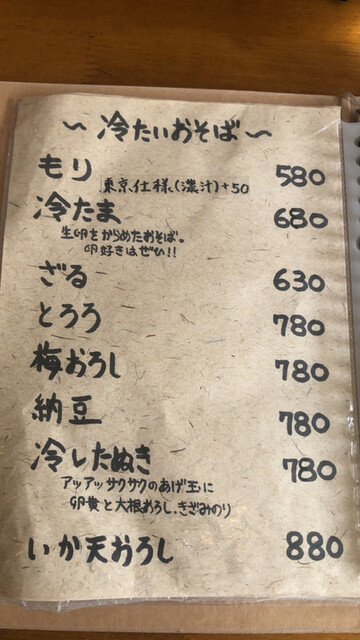 ～冷たいおそば～
もり 580
東京仕様(濃汁)+50
冷たま 680
生卵をからめたおそば。
卵好きはぜひ!!
ざる 630
とろろ 780
梅おろし 780
納豆 780
冷したぬき 780
アッアッサクサクのあげ玉に
卵黄と大根おろし、きざみのり
いか天おろし 880